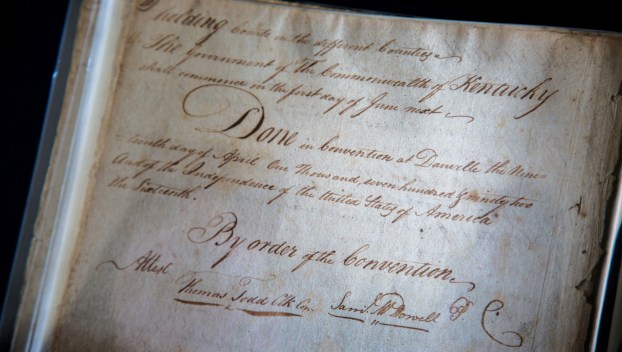 holding Courts in the different Counties
6. The Government of The Commonwealth of Kentucky
shall commence in the first day of June next
Done in Convention at Danville the Nine-
-teenth day of April One Thousand, seven hundred & ninety two
And of the Independence of the United States of America
the Sixteenth.
By order of the Convention
Attest
Thomas Todd Clk Con. Saml. McDowell P. C.